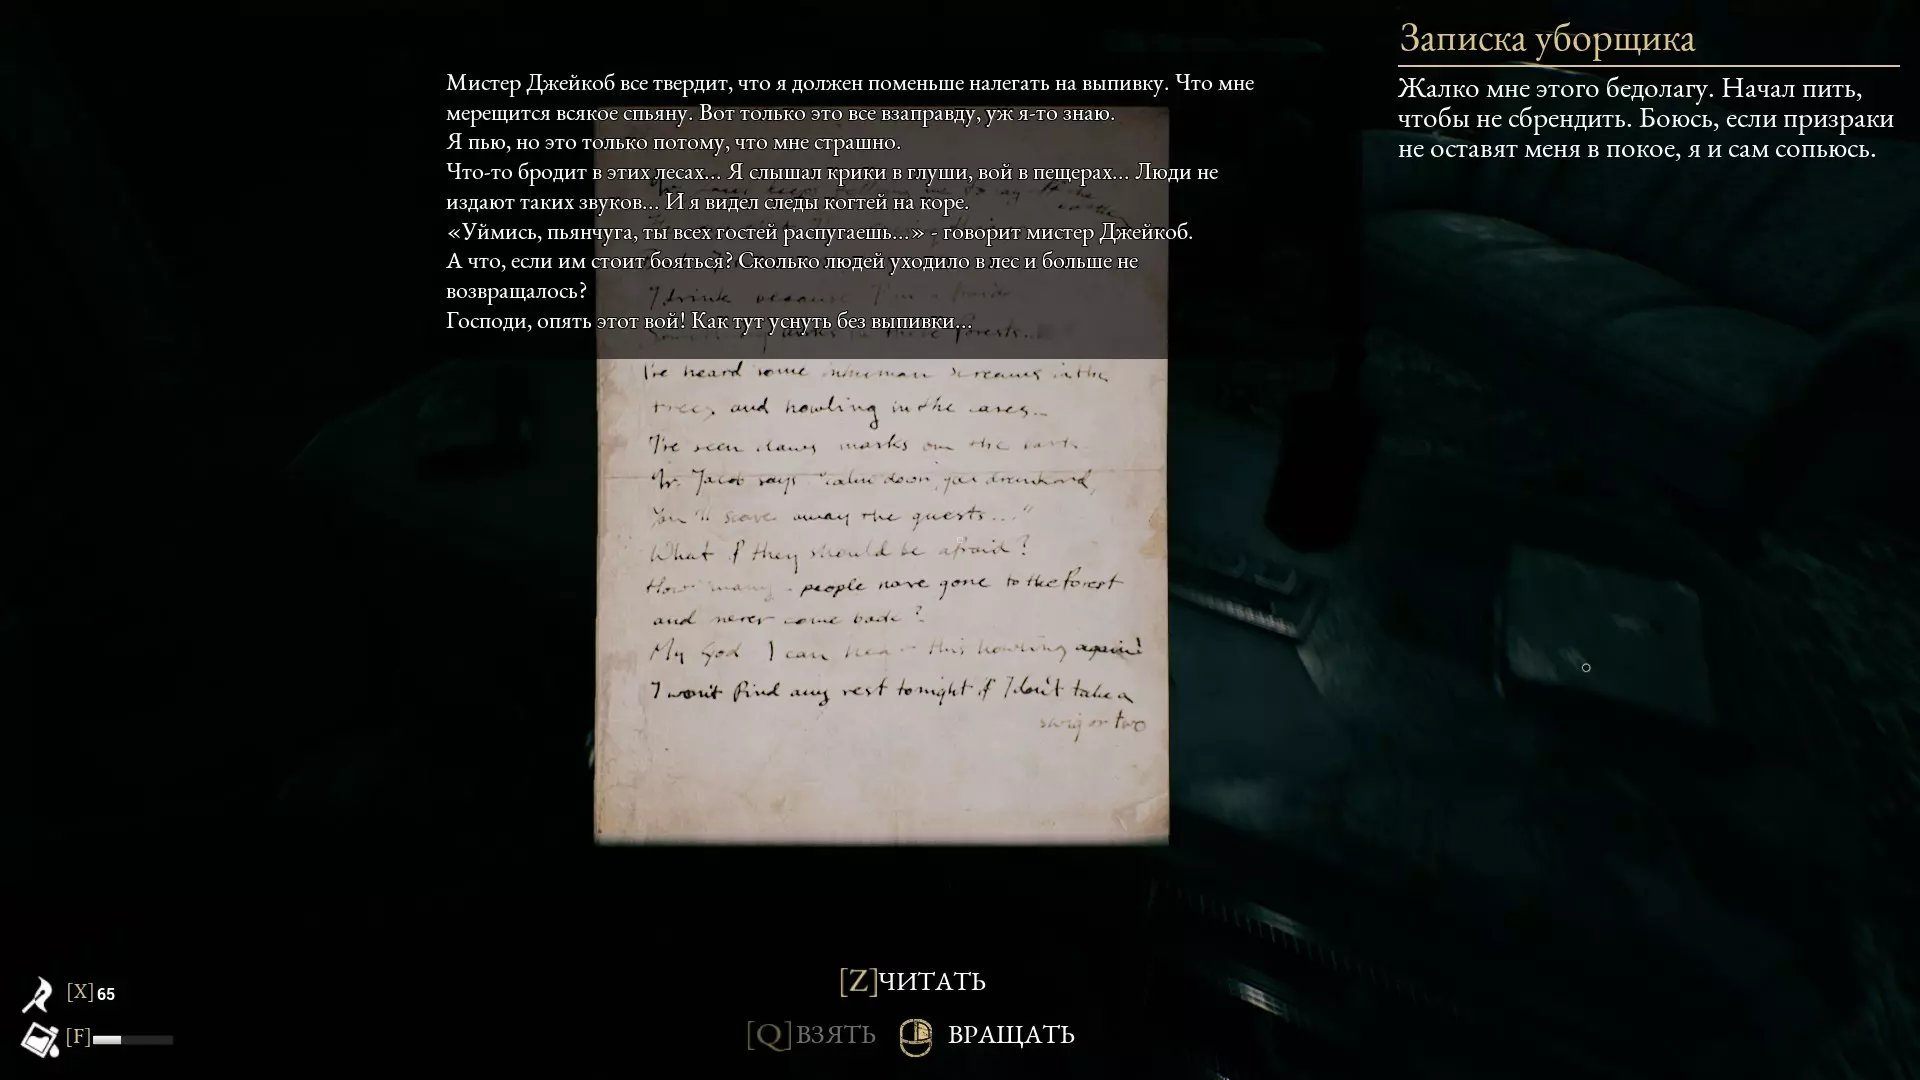 Записка уборщика
Жалко мне этого бедолагу. Начал пить,
чтобы не сбрендить. Боюсь, если призраки
не оставят меня в покое, я и сам сопьюсь.
Мистер Джейкоб все твердит, что я должен поменьше налегать на выпивку. Что мне
мерещится всякое спьяну. Вот только это все взаправду, уж я-то знаю.
Я пью, но это только потому, что мне страшно.
Что-то бродит в этих лесах... Я слышал крики в глуши, вой в пещерах... Люди не
издают таких звуков... И я видел следы когтей на коре.
«Уймись, пьянчуга, ты всех гостей распугаешь...» - говорит мистер Джейкоб.
А что, если им стоит бояться? Сколько людей уходило в лес и больше не
возвращалось?
Господи, опять этот вой! Как тут уснуть без выпивки...
I drink because I'm afraid
these forests...
I've heard some inhuman screams in the
trees and howling in the caves...
I've seen claws marks on the
Mr. Jacob says "calm down, you drunkard,
You'll scare away the guests..."
What if they should be afraid?
How many people have gone to the forest
and never come back?
My God I can hear this howling again!
I won't find any rest tonight if I don't take a
swig or two
[Z]ЧИТАТЬ
[Q]ВЗЯТЬ ВРАЩАТЬ
[X] 65
[F]